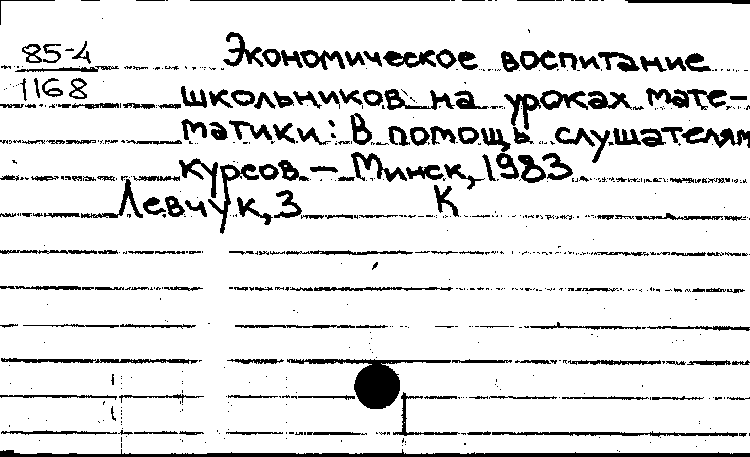 85-4
1168
Экономическое воспитание
школьников на уроках мате-
матики: В помощь слушателям
курсов – Минск, 1983
Левчук, З К